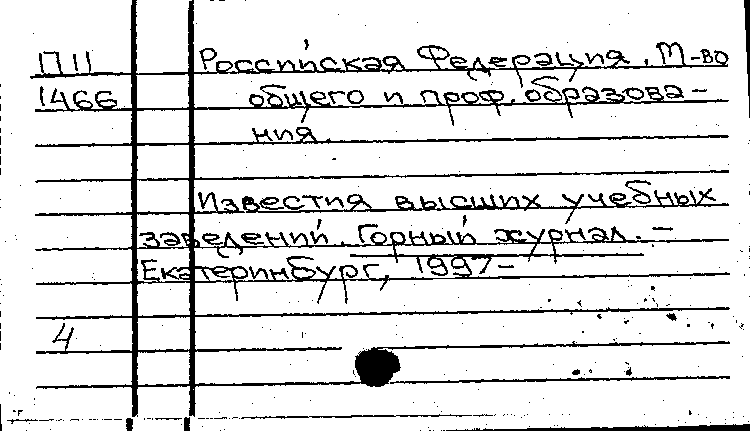 П11 Российская Федерация. М-во
1466 общего и проф. образова-
ния.
Известия высших учебных
заведений. Горный журнал. –
Екатеринбург, 1997–
4